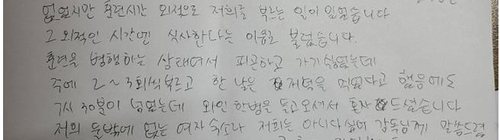 없었지만 훈련시간 외적으로 저희를 부르는 일이 있었습니다
그 외적인 시간엔 식사한다는 이유로 불렀습니다
훈련을 병행하는 상태여서 피곤하고 가기 싫었는데
주에 2~3회씩 부르고 한 날은 저녁을 먹었다고 했음에도
7시 30분이 넘었는데 와인 한병을 들고오셔서 혼자 드셨습니다
저희 숙박에 없는 여자 숙소나 저희는 아니다싶어 감독님께 말씀드렸